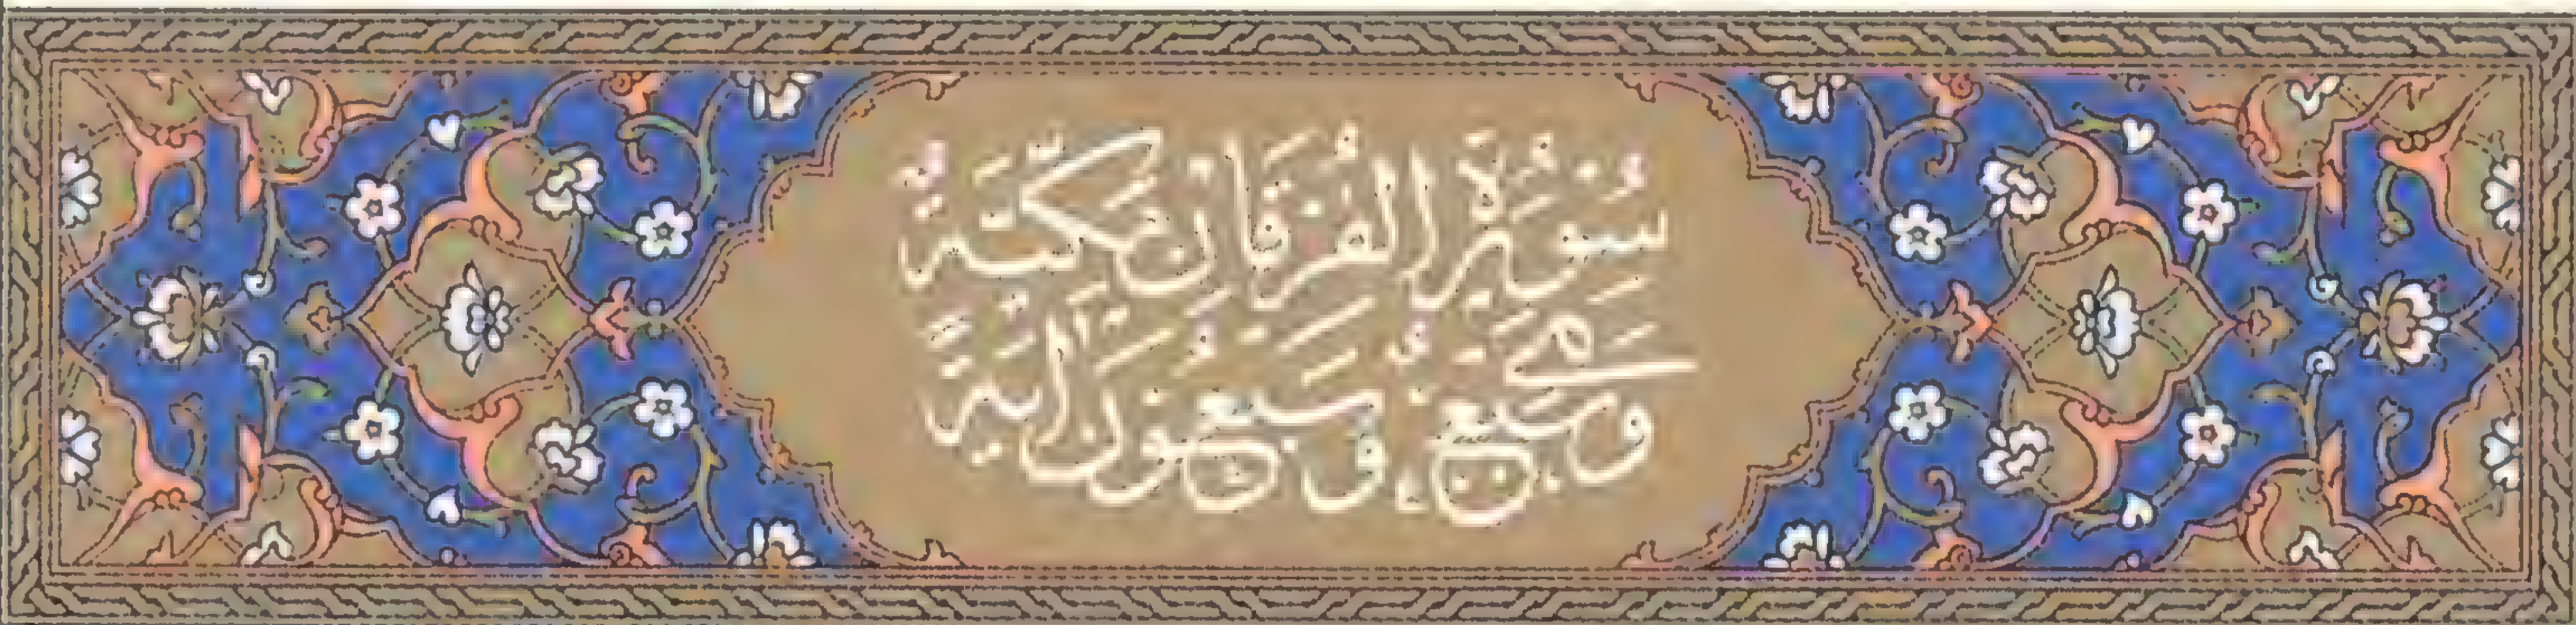 سُورَةُ الفُرقَانِ مَكِّيَّةٌ
وَهِيَ سَبْعٌ وَسَبْعُونَ آيَةً